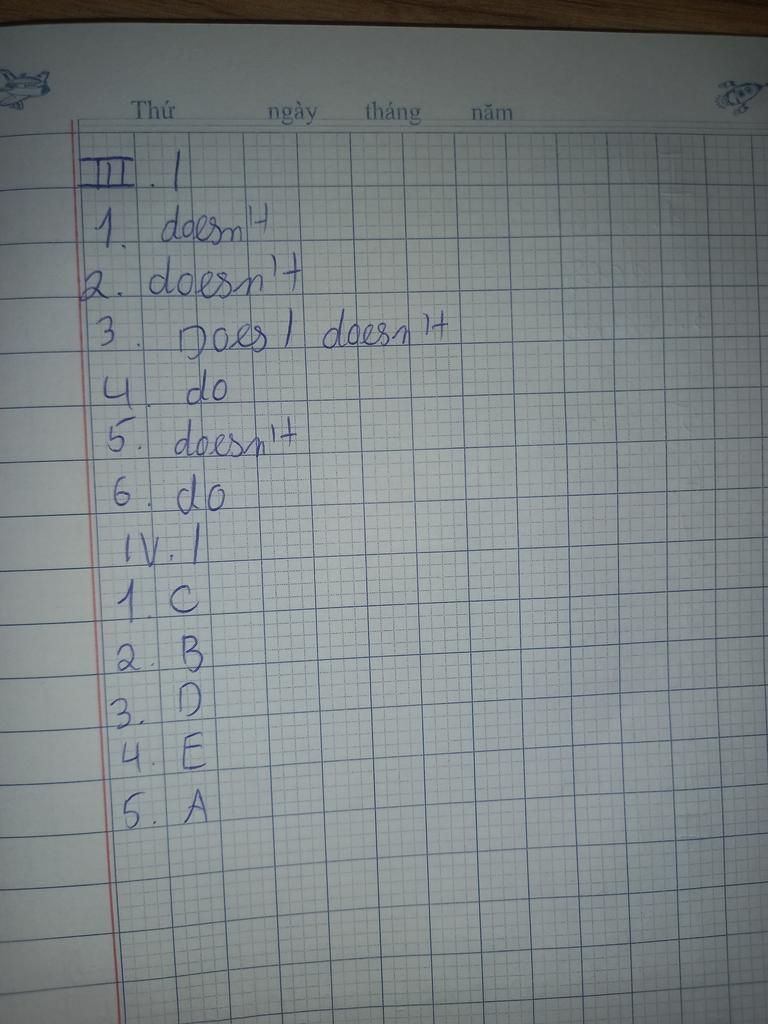 Thứ ngày tháng năm
III. 1
1. doesn't
2. doesn't
3. Does / doesn't
4. do
5. doesn't
6. do
IV. 1
1. C
2. B
3. D
4. E
5. A